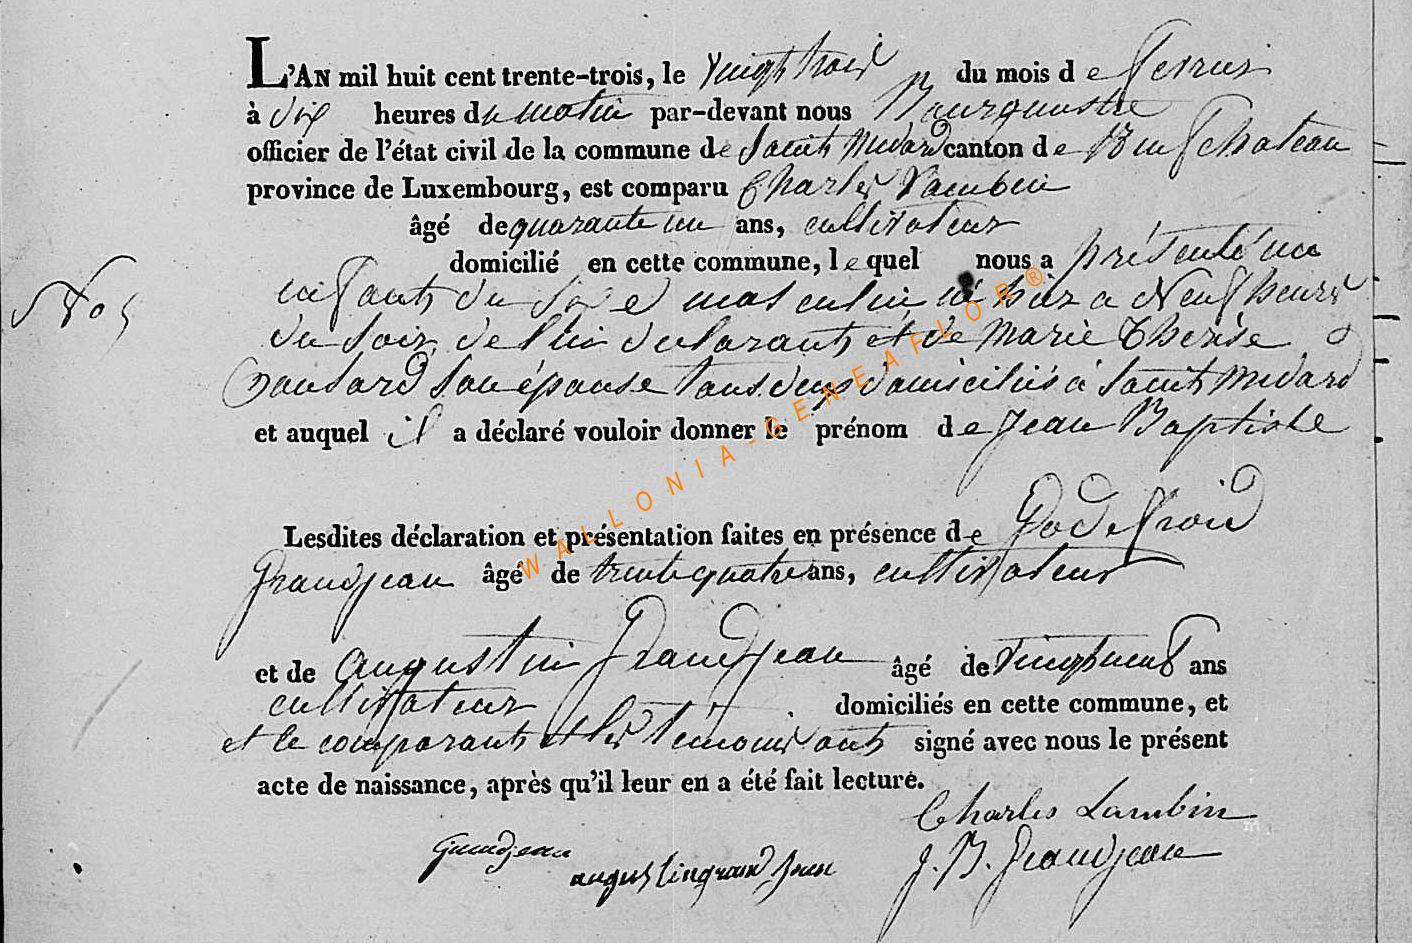 L'AN mil huit cent trente-trois, le vingt trois du mois de fevrier
à dix heures du matin par-devant nous Bourguemestre
officier de l'état civil de la commune de Saint Medard canton de Neufchateau
province de Luxembourg, est comparu Charles Lambin
âgé de quarante un ans, cultivateur
domicilié en cette commune, lequel nous a présenté un
No 5
enfant du sexe masculin né hier a Neuf heures
du soir, de lui declarant et de Marie Therése
son épouse tous deux domiciliés à Saint Medard
et auquel il a déclaré vouloir donner le prénom de Jean Baptiste
WALLONIA-GENEAFLOR®
Lesdites déclaration et présentation faites en présence de Godefroid
Grandjean âgé de trente quatre ans, cultivateur
et de Augustin Grandjean âgé de vingt neuf ans
cultivateur domiciliés en cette commune, et
et le comparant et les témoins ont signé avec nous le présent
acte de naissance, après qu'il leur en a été fait lecture.
Charles Lambin
Grandjean augustin grandjean J. B. Grandjean